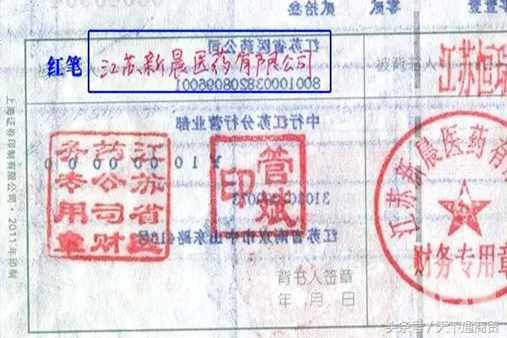 贰拾叁
江苏省医药公司
红笔
江苏新晨医药有限公司
被背书人
江苏恒瑞
中行江苏分行营业部
江苏省医药公司财务专用章
管斌印
江苏新晨医药有
财务专用章
背书人签章
年 月 日
上海证券印制有限公司·2011年印制
头条号 / 天下通商贸